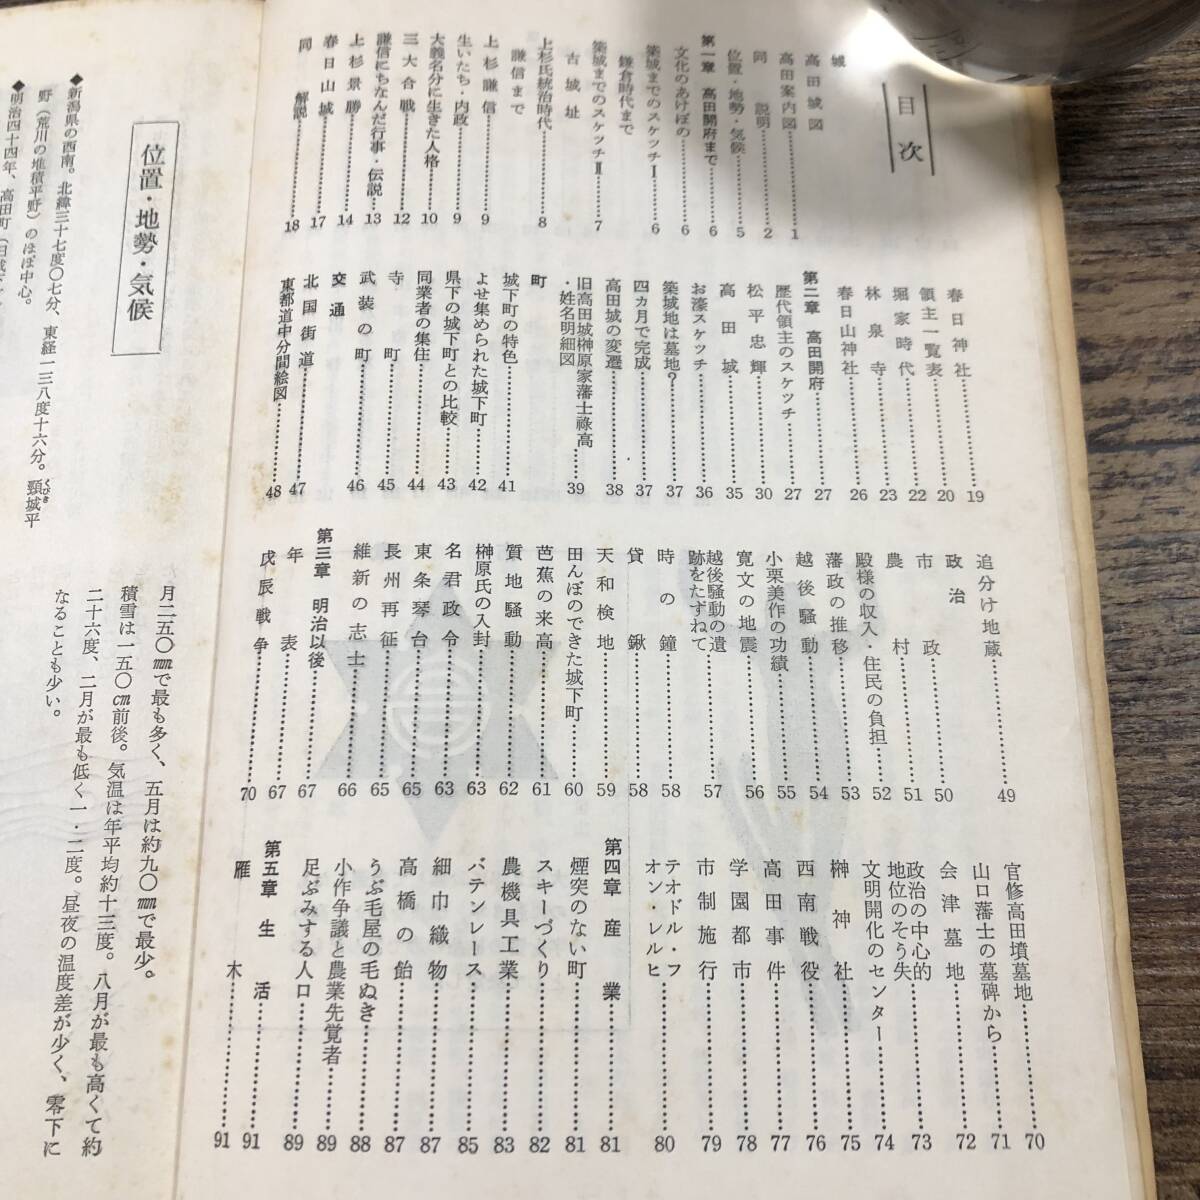 目次
城
高田城図
高田案内図……1
同　説明……2
位置・地勢・気候……5
第一章　高田開府まで……6
文化のあけぼの……6
築城までのスケッチⅠ……6
鎌倉時代まで
築城までのスケッチⅡ……7
古城址
上杉氏統治時代……8
謙信まで
上杉謙信……9
生いたち・内政……9
大義名分に生きた人格……10
三大合戦……12
謙信にちなんだ行事・伝説……13
上杉景勝……14
春日山城……17
同　解説……18
春日神社……19
領主一覧表……20
堀家時代……22
林泉寺……23
春日山神社……26
第二章　高田開府……27
歴代領主のスケッチ……27
松平忠輝……30
高田城……35
お濠スケッチ……36
築城地は墓地？……37
四カ月で完成……37
高田城の変遷……38
旧高田城榊原家藩士祿高
・姓名明細図……39
町
城下町の特色……41
よせ集められた城下町……42
県下の城下町との比較……43
同業者の集住……44
寺町……45
武装の町……46
交通
北国街道……47
東都道中分間絵図……48
追分け地蔵……49
政治
市政……50
農村……51
殿様の収入・住民の負担……52
藩政の推移……53
越後騒動……54
小栗美作の功績……55
寛文の地震……56
越後騒動の遺
跡をたずねて……57
時の鐘……58
貸鍬……58
天和検地……59
田んぼのできた城下町……60
芭蕉の来高……61
質地騒動……62
榊原氏の入封……63
名君政令……63
東条琴台……65
長州再征……65
維新の志士……66
第三章　明治以後……67
年表……67
戊辰戦争……70
官修高田墳墓地……70
山口藩士の墓碑から……71
会津墓地……72
政治の中心的
地位のそう失……73
文明開化のセンター……74
榊神社……75
西南戦役……76
高田事件……77
学園都市……78
市制施行……79
テオドル・フ
オン・レルヒ……80
第四章　産業……81
煙突のない町……81
スキーづくり……82
農機具工業……83
バテンレース……85
細巾織物……87
高橋の飴……87
うぶ毛屋の毛ぬき……88
小作争議と農業先覚者……89
足ぶみする人口……89
第五章　生活……91
雁木……91
位置・地勢・気候
◆新潟県の西南。北緯三十七度〇七分、東経一三八度十六分。頸城平
くびき
野（荒川の堆積平野）のほぼ中心。
◆明治四十四年、高田町
月二五〇㎜で最も多く、五月は約九〇㎜で最少。
積雪は一五〇㎝前後。気温は年平均約十三度。八月が最も高くて約
二十六度、二月が最も低く一・二度。昼夜の温度差が少く、零下に
なることも少い。